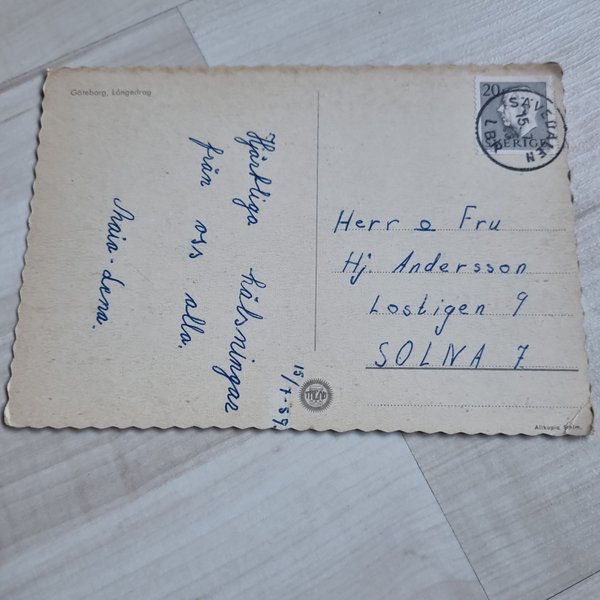 Göteborg, Långedrag
Hjärtliga hälsningar
från oss alla.
Maia-Lena.
15/7-59.
20
SVERIGE
SÄVEDALEN
15
LBR
Herr o Fru
Hj. Andersson
Lostigen 9
SOLNA 7
Allkopia Sthlm.